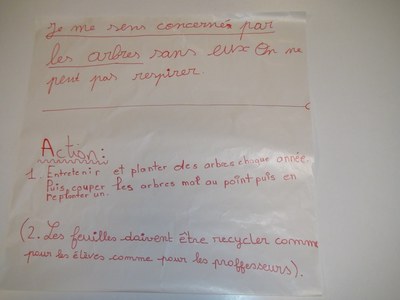 Je me sens concernés par
les arbres sans eux On ne
peut pas respirer.
Action:
1. Entretenir et planter des arbres chaque année.
Puis couper les arbres mal au point puis en
replanter un.
(2. Les feuilles daivent être recycler comme
pour les élèves comme pour les proffesseurs).